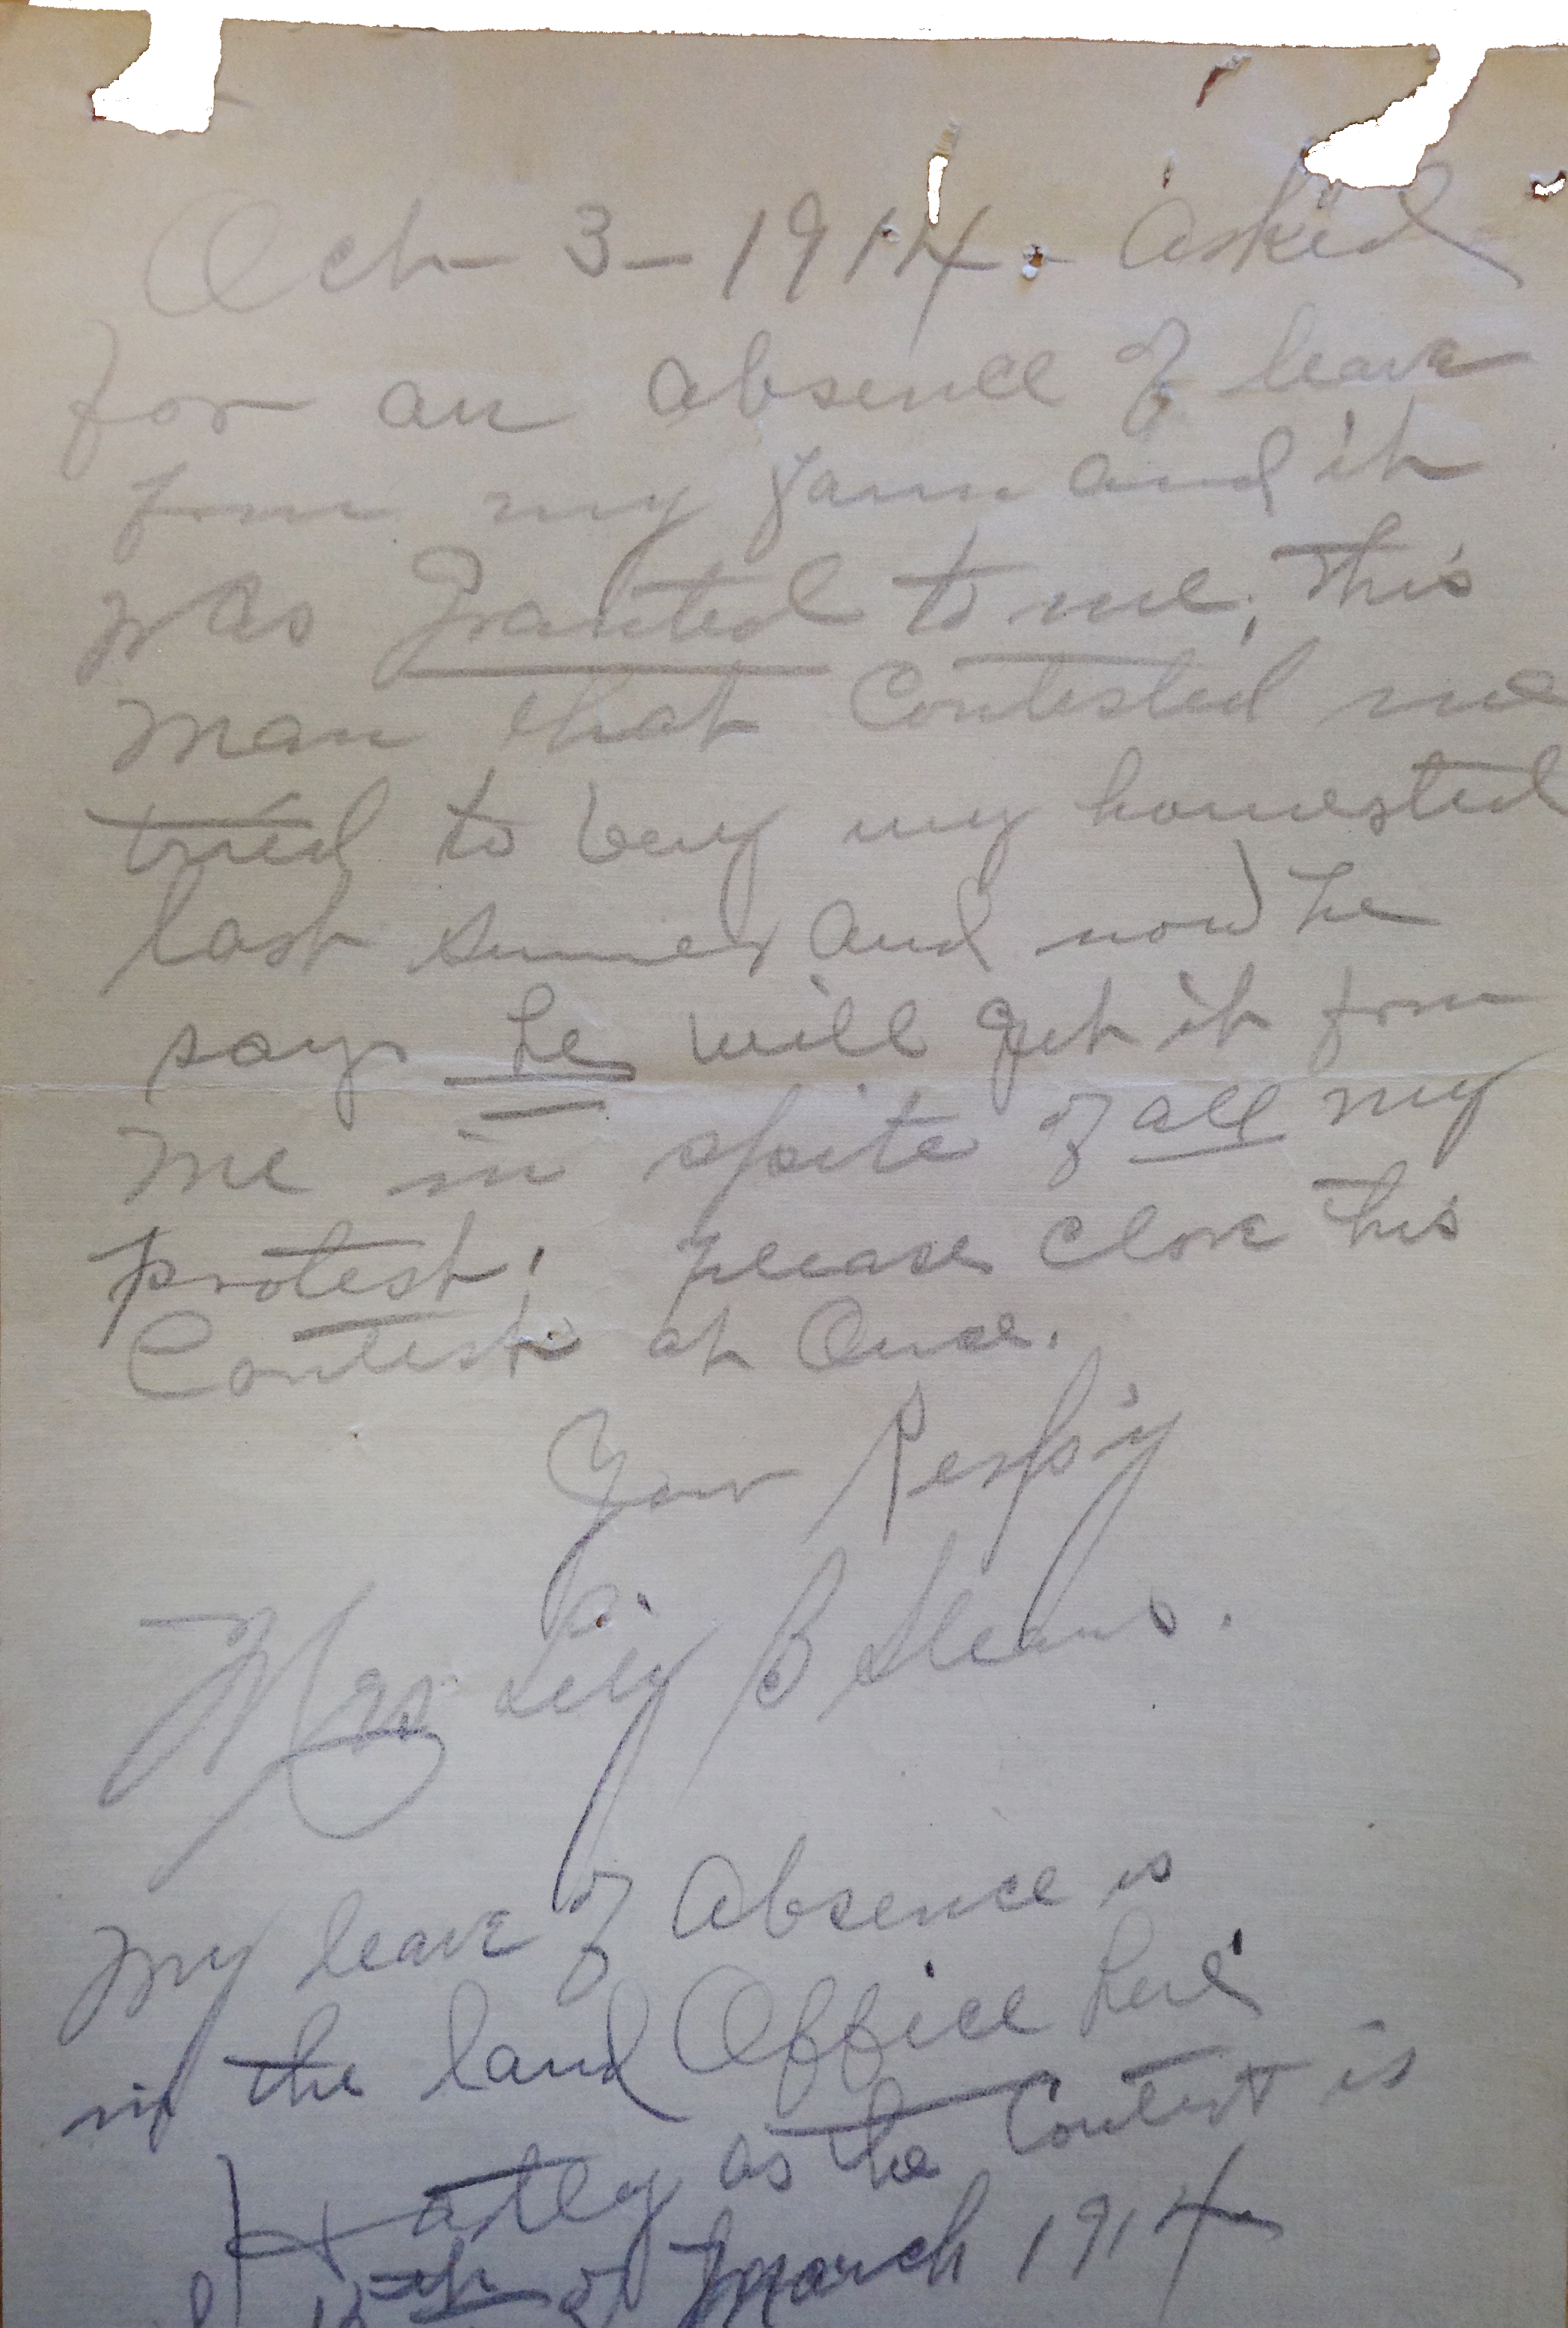 Oct - 3 - 1914. asked
for an absence of leave
from my farm and it
was Granted to me, this
man that Contested me
tried to buy my homested
last summer and now he
says he will get it from
me in spite of all my
protest! please close this
Contest at Once.
Your Resp'y
Mrs Lily B Stearns.
My leave of Absence is
in the land Office here
as the Contest is
15th of March 1914